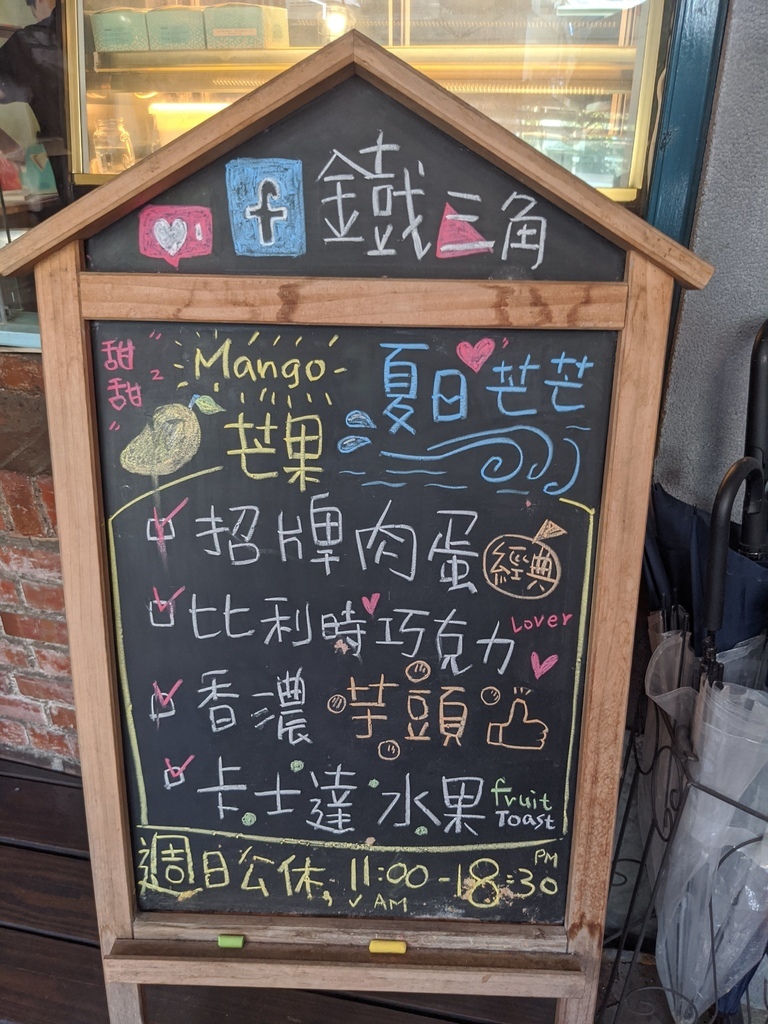 f 鐵三角
甜甜 Mango 夏日芒芒
芒果
招牌肉蛋 經典
比利時巧克力 Lover
香濃芋頭
卡士達水果 fruit Toast
週日公休, 11:00-18:30
AM PM